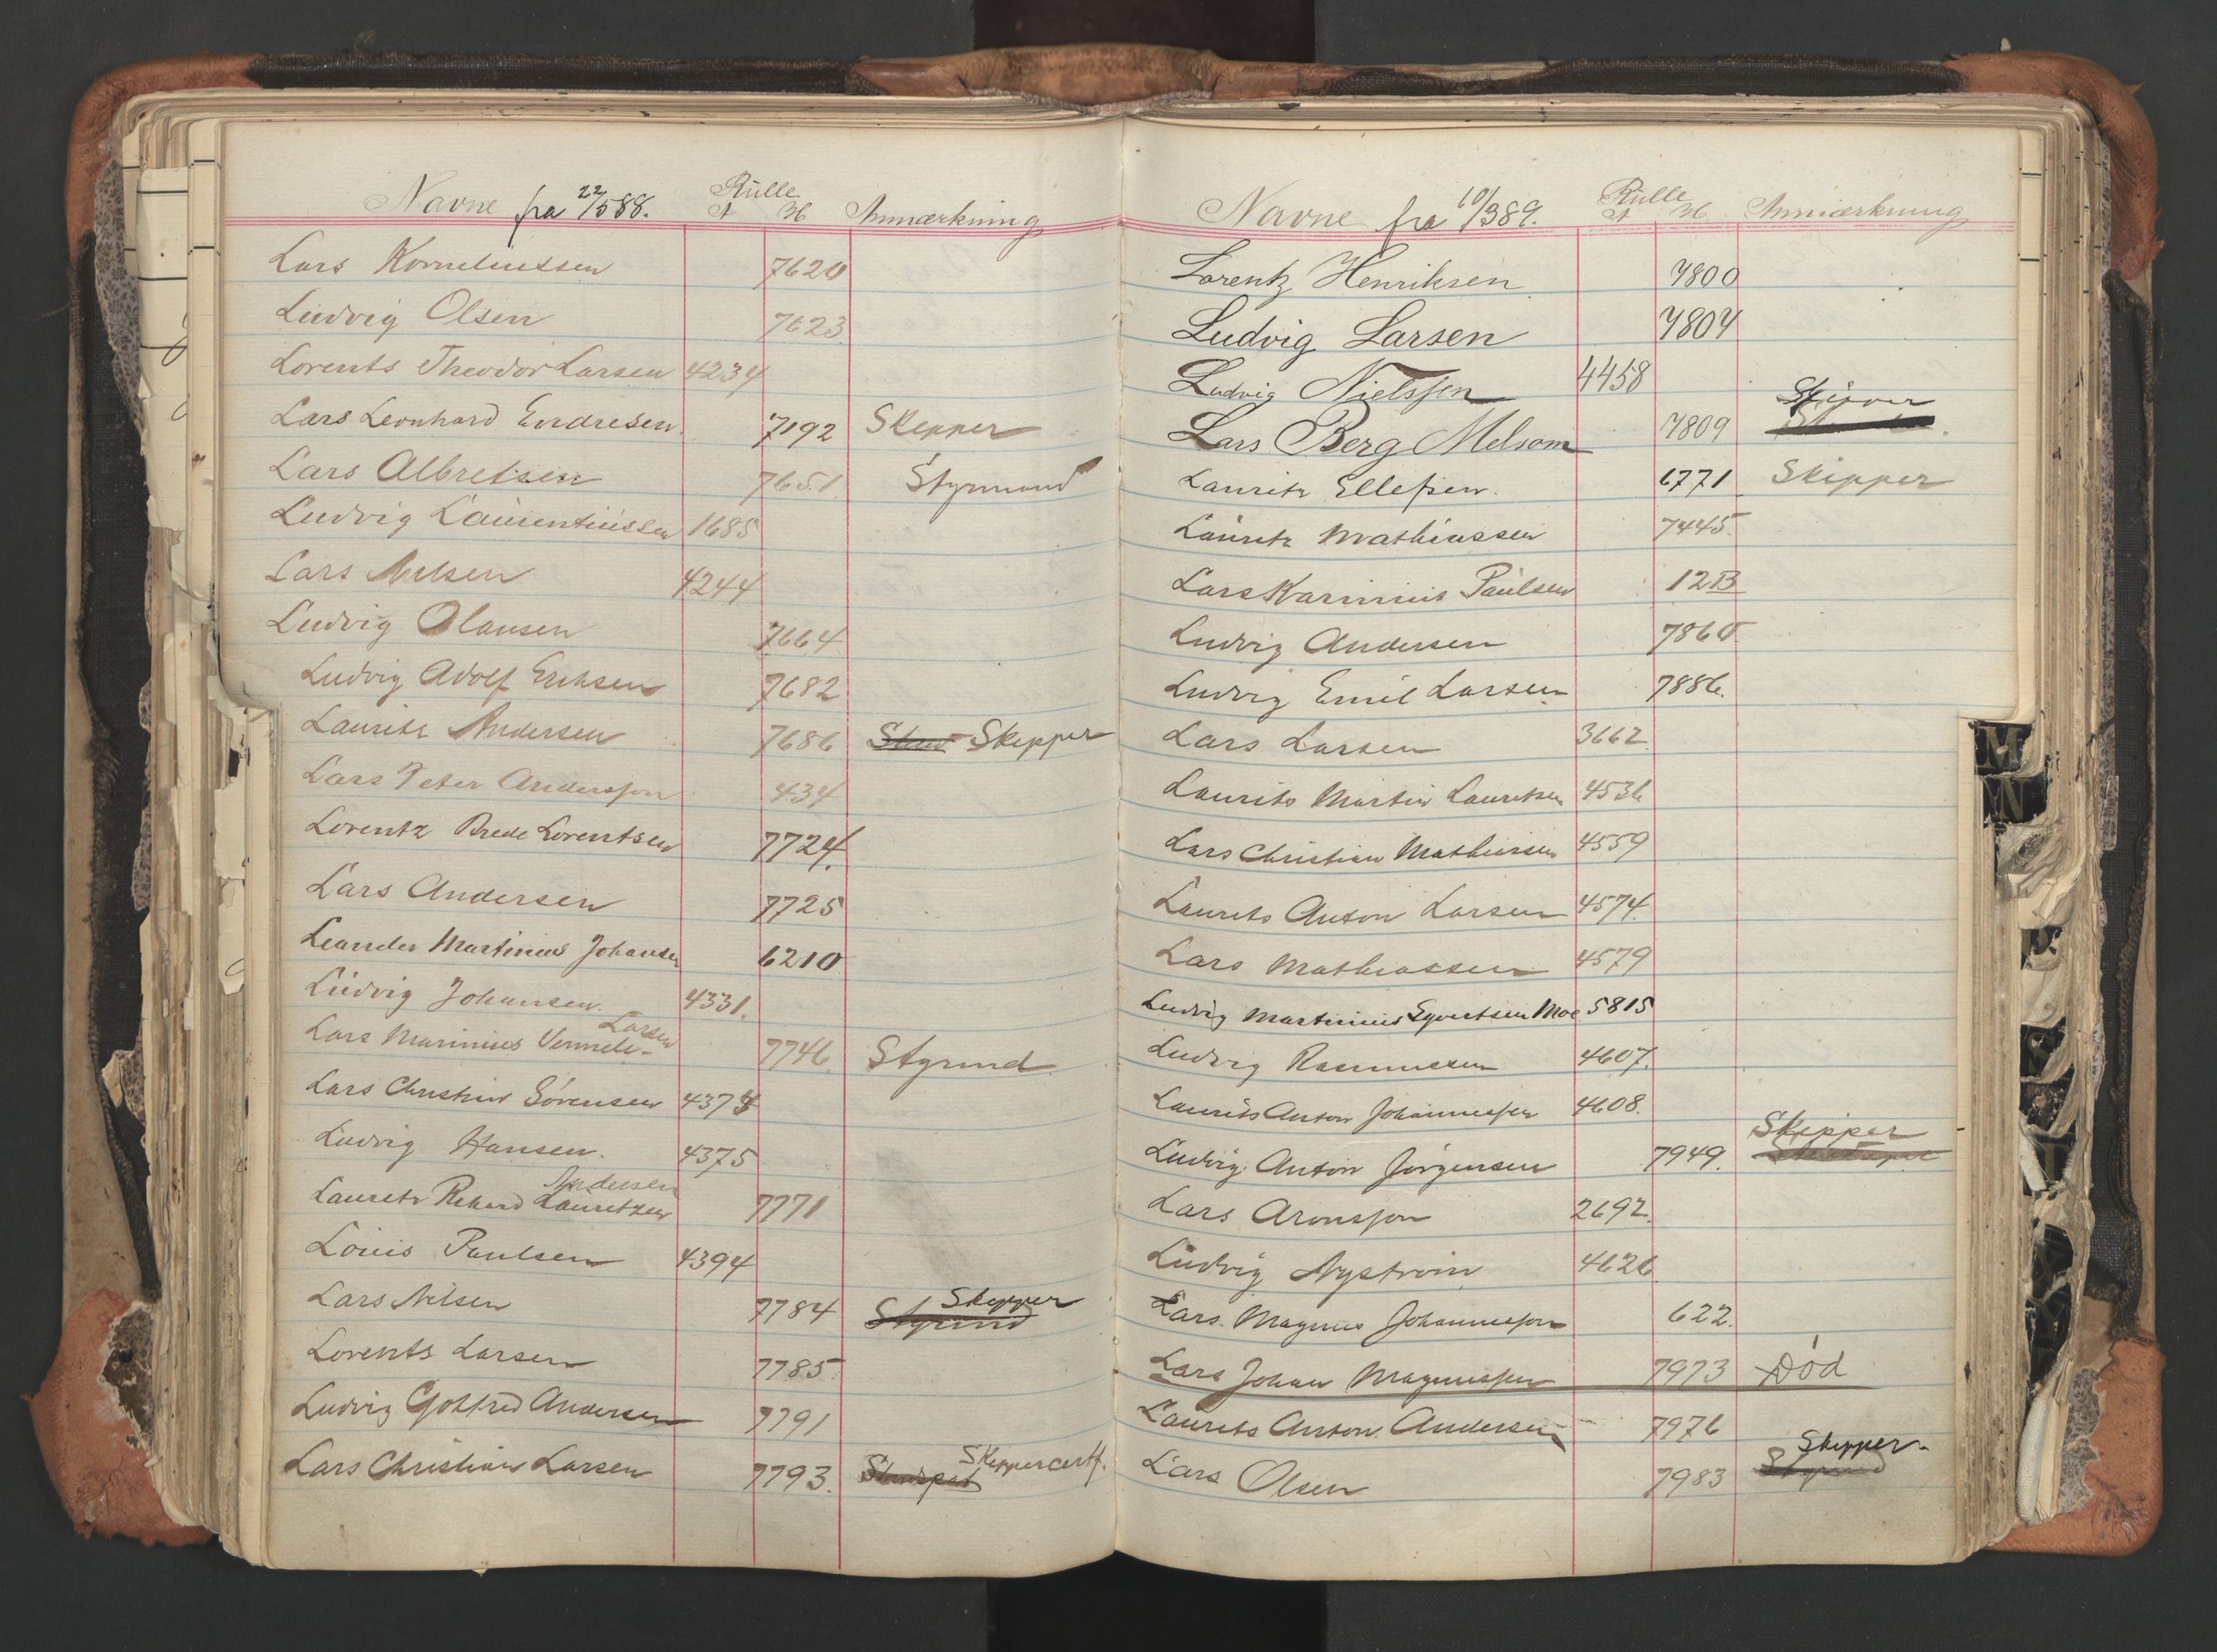 Navne fra 22/5 88. Rulle Anmærkning
Lars Korneliussen 7620
Ludvig Olsen 7623
Lorents Theodor Larsen 4234
Lars Leonhard Endresen 7192 Skipper
Lars Albretsen 7651 Styrmand
Ludvig Laurentiussen 1685
Lars Nilsen 4244
Ludvig Olausen 7664
Ludvig Adolf Eriksen 7682
Lauritz Andersen 7686 Skipper
Lars Peter Andersson 434
Lorentz Brede Lorentsen 7724.
Lars Andersen 7725
Leander Martinius Johansen 6210
Ludvig Johansen. 4331.
Larsen
Lars Marinius 7746. Styrmd
Lars Christian Sörensen 4374
Ludvig Hansen. 4375
Andersen
Lauritz Rikard Lauritzen 7771
Louis Paulsen 4394
Lars Nilsen 7784 Styrmd Skipper
Lorents Larsen 7785
Ludvig Gotfred Andersen 7791
Lars Christian Larsen 7793. Skippercertf.
Navne fra 10/3 89. Rulle Anmærkning
Lorentz Henriksen 7800
Ludvig Larsen 7804
Ludvig Nielssen 4458
Lars Berg Melsom 7809
Lauritz Ellefsen. 6771 Skipper
Lauritz Mathiassen 7445.
Lars Karinius Paulsen 12B
Ludvig Andersen 7860
Ludvig Emil Larsen 7886.
Lars Larsen 3662
Laurits Martin Lauritsen 4536
Lars Christian Mathiesen 4559
Laurits Anton Larsen 4574.
Lars Mathiassen 4579
Ludvig Martinius Syvertsen Moe 5815
Ludvig Rasmussen 4607.
Laurits Anton Johannessen 4608.
Ludvig Anton Jörgensen 7949. Skipper
Lars Aronsson 2692.
Ludvig Nyström 4626
Lars Magnus Johannesson 622.
Lars Johan Magnussen 7973 Död
Laurits Anton Andersen 7976
Lars Olsen 7983 Styrmd Skipper
M
N